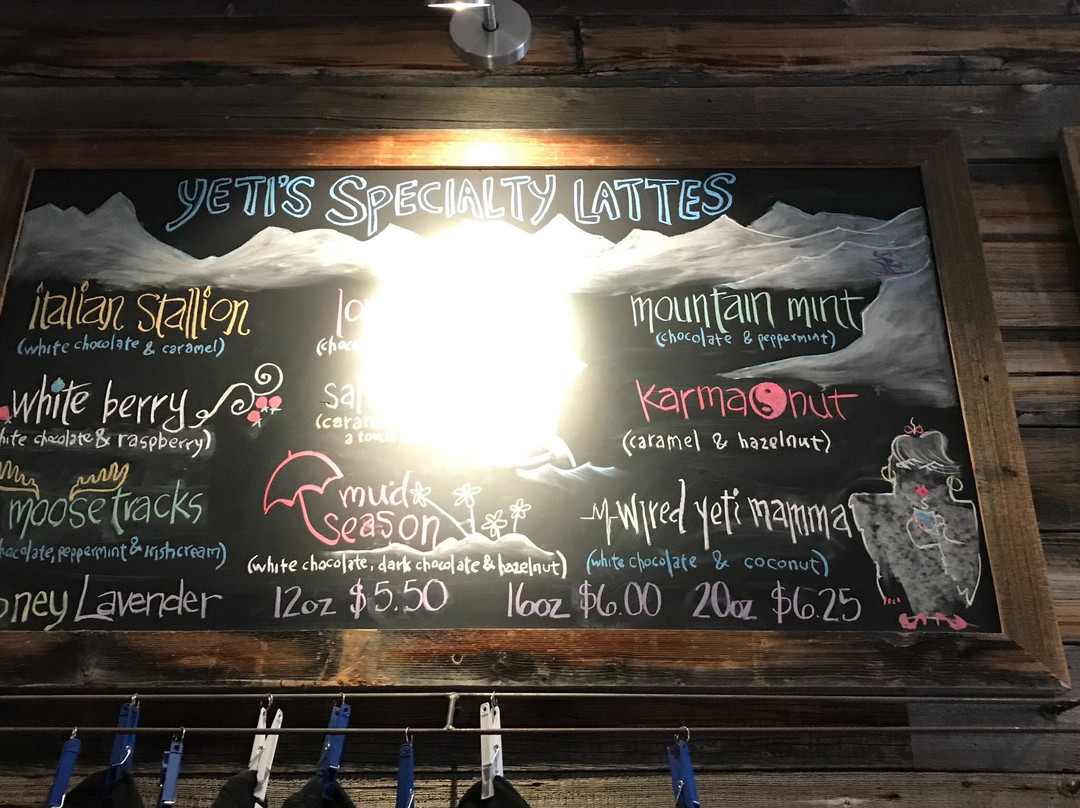 YETI'S SPECIALTY LATTES
italian stallion
(white chocolate & caramel)
white berry
chocolate & raspberry)
moose tracks
peppermint & irish cream)
Lavender
mud season
(white chocolate, dark chocolate & hazelnut)
mountain mint
(chocolate & peppermint)
karma nut
(caramel & hazelnut)
wired yeti mamma
(white chocolate & coconut)
12oz $5.50 16oz $6.00 20oz $6.25